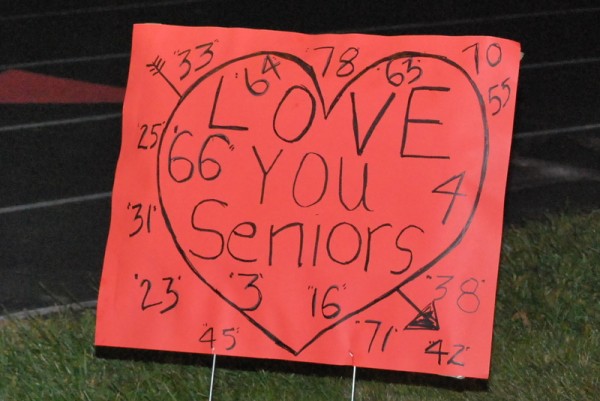 "33" "64" "78" "65" 70
LOVE 55
"25" "66" YOU 4
"31" Seniors
"23" "3" "16" "38"
"45" "71" "42"